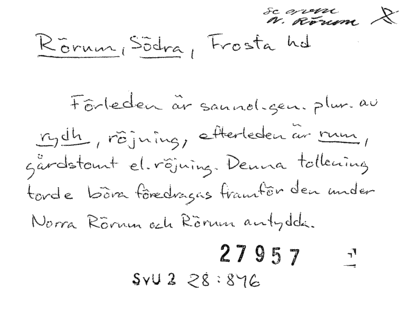 se även
N. Rörum
Rörum, Södra, Frosta hd
Förleden är sannol. gen. plur. av
rydh, röjning, efterleden är rum,
gårdstomt el. röjning. Denna tolkning
torde böra föredragas framför den under
Norra Rörum och Rörum antydda.
27957
SvU 2 28:846